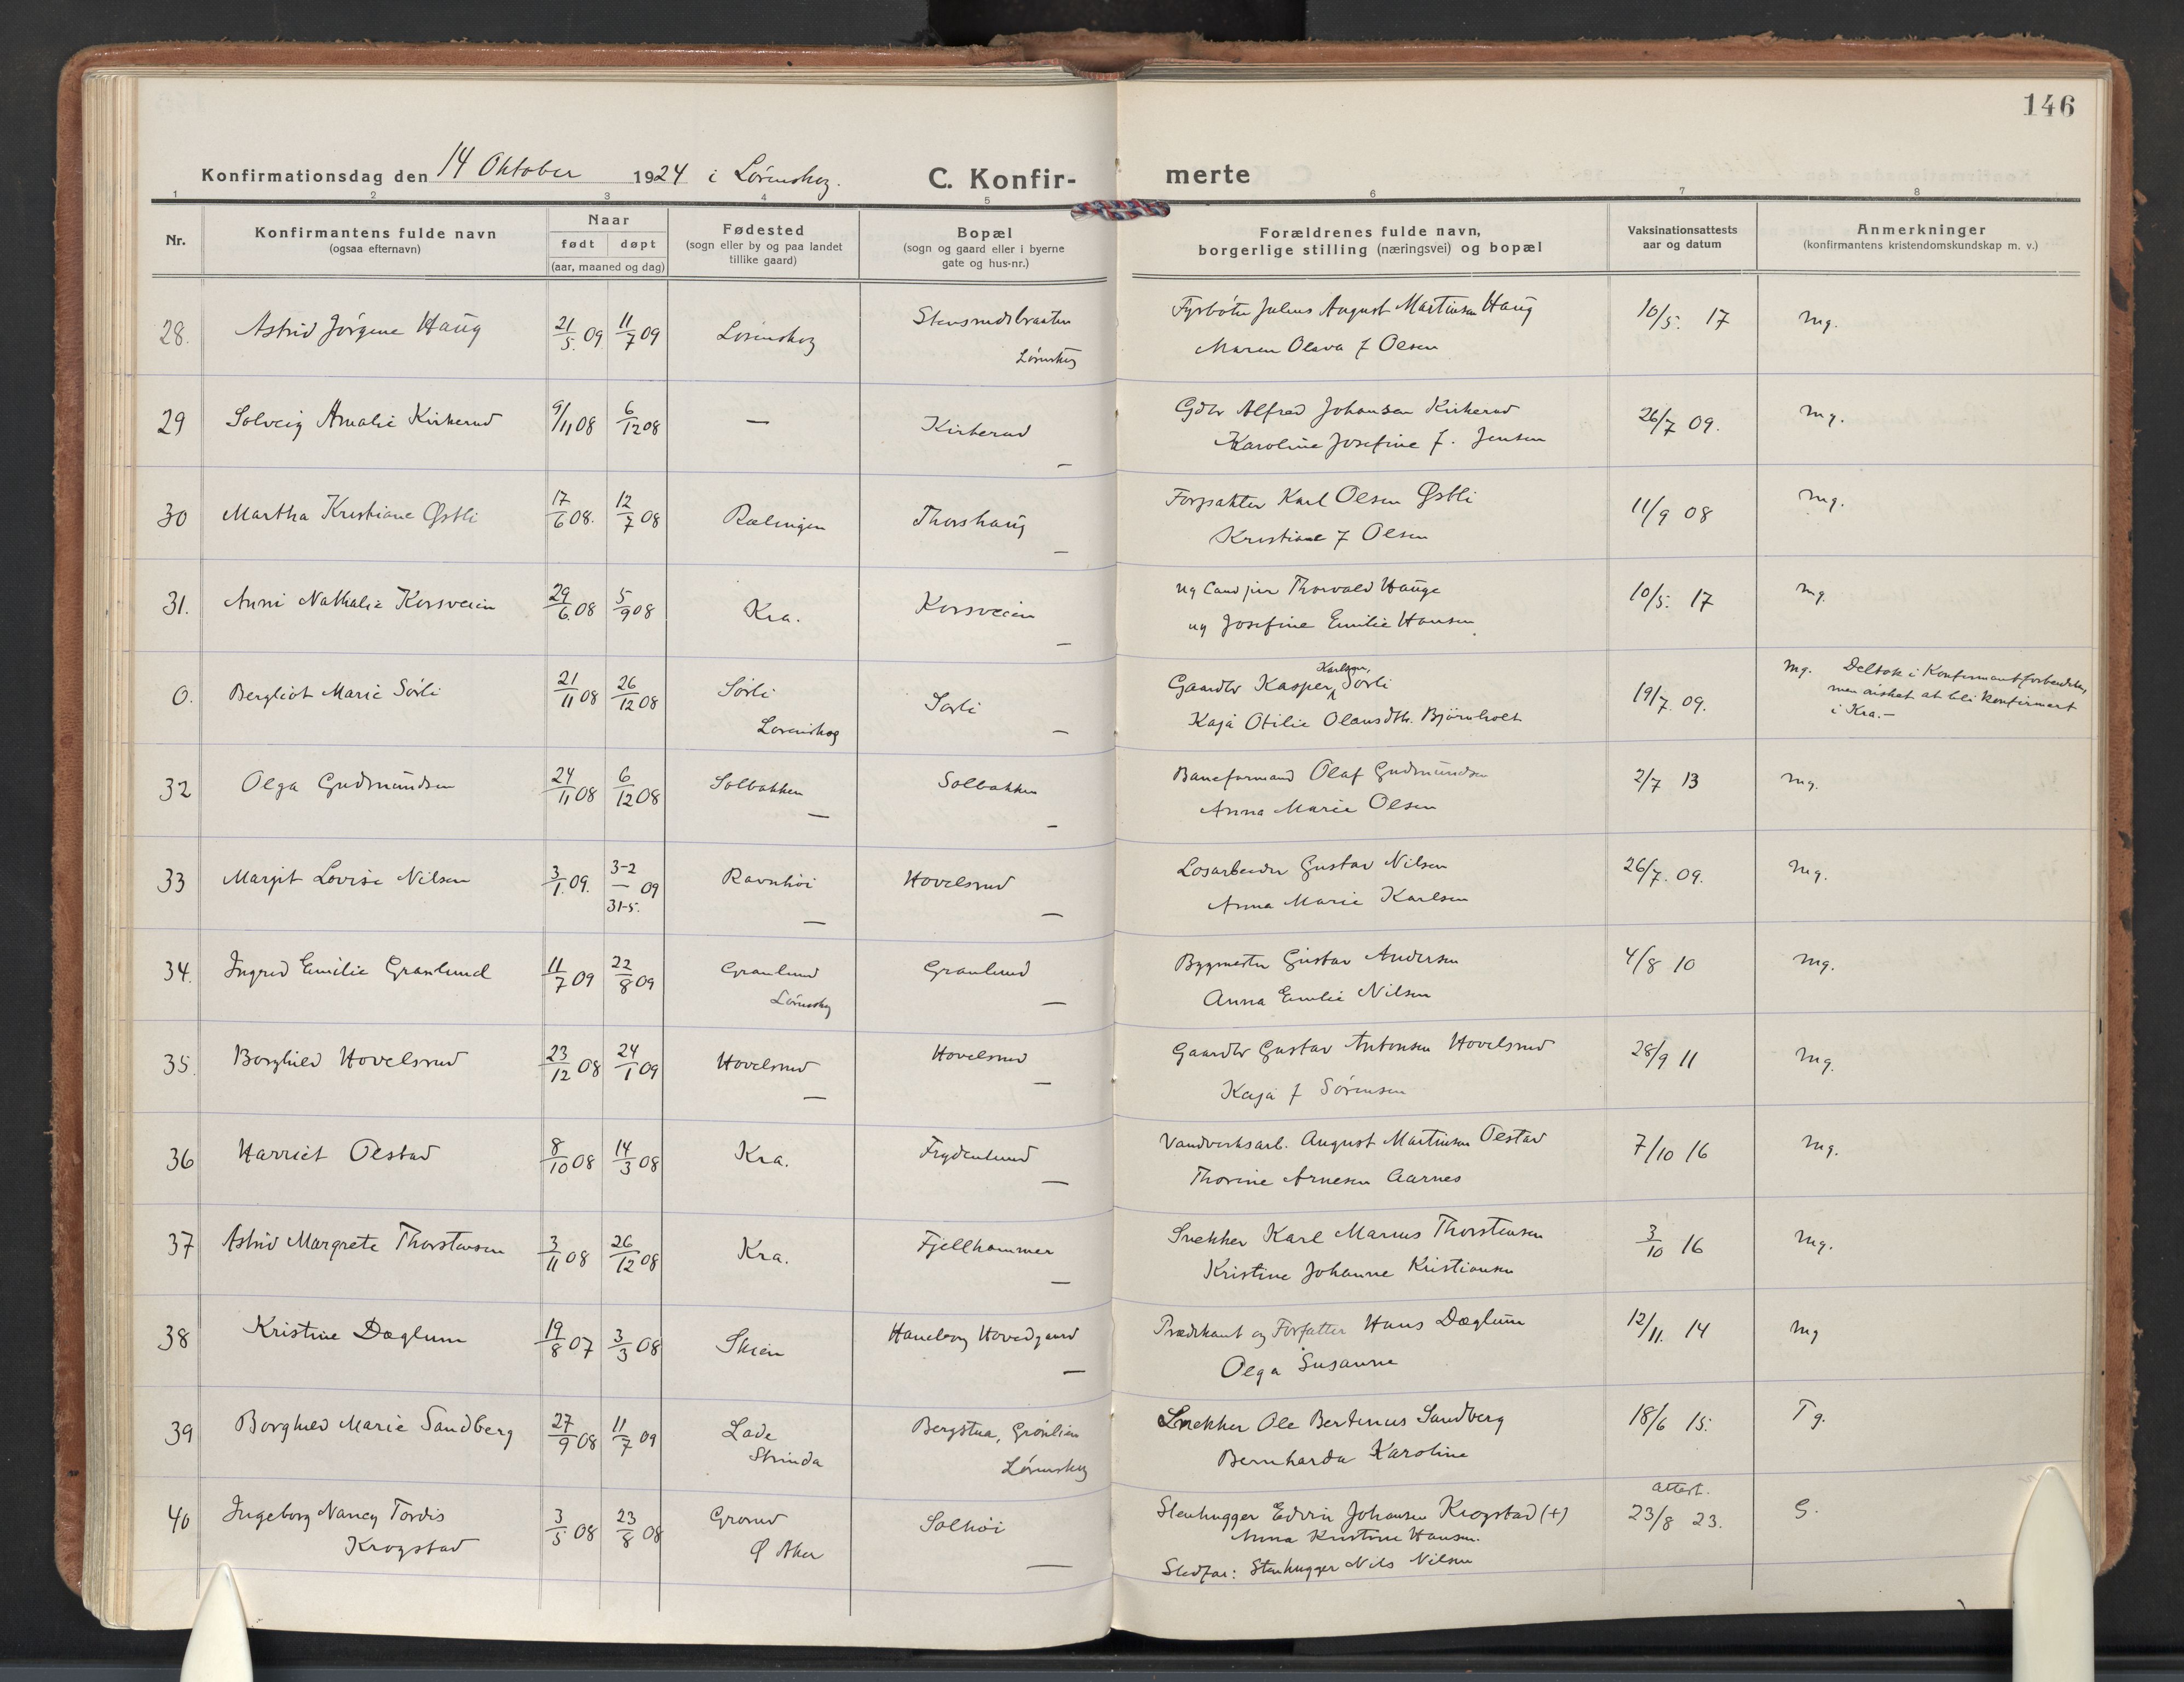 146
Konfirmationsdag den 14 Oktober 1924 i Lørenskog. C. Konfir- merte
1 2 3 4 5 6 7 8
Nr. Konfirmantens fulde navn (ogsaa efternavn) Naar født døpt (aar, maaned og dag) Fødested (sogn eller by og paa landet tillike gaard) Bopæl (sogn og gaard eller i byerne gate og hus-nr.) Forældrenes fulde navn, borgerlige stilling (næringsvei) og bopæl Vaksinationsattests aar og datum Anmerkninger (konfirmantens kristendomskundskap m. v.)
28. Astrid Jørgine Haug 21/5. 09 11/7 09 Lørenskog Stensrudsbraaten Fyrbøter Julius August Martinsen Haug 10/5. 17 Mg.
Lørenskog Maren Olava f Olsen
29 Solveig Amalie Kirkerud 9/11 08 6/12 08 — Kirkerud Gdbr Alfred Johansen Kirkerud 26/7 09. Mg.
— Karoline Josefine f. Jensen
30 Martha Kristiane Østli 17/6 08. 12/7 08 Rælingen Thorshaug Forpakter Karl Olsen Østli 11/9 08 Mg.
— Kristiane f Olsen
31. Anni Nathalie Korsveien 29/6. 08 5/9 08 Kra. Korsveien ug Cand jur Thorvald Hauge 10/5. 17 Mg.
— ug Josefine Emilie Hansen
0. Bergliot Marie Sörli 21/11 08 26/12 08 Sörli Sörli Gaardbr Kasper Karlsen, Sörli 19/7. 09. Mg. Deltok i Konfirmantforberedelsen,
men ønsket at bli konfirmert
Lørenskog — Kaja Otilie Olausdtr. Björnholt i Kra.—
32 Olga Gudmundsen 24/11 08 6/12 08 Solbakken Solbakken Baneformand Olaf Gudmundsen 2/7 13 Mg.
— — Anna Marie Olsen
33 Margit Lovise Nilsen 3/1. 09. 3-2 — 09 31-5. Ravnhöi Hovelsrud Losarbeider Gustav Nilsen 26/7. 09. Mg.
— — Anna Marie Karlsen
34. Ingrid Emilie Granlund 11/7 09 22/8 09 Granlund Granlund Bygmester Gustav Andersen 4/8 10 Mg.
Lørenskog — Anna Emilie Nilsen
35. Borghild Hovelsrud 23/12 08 24/1 09 Hovelsrud Hovelsrud Gaardbr Gustav Antonsen Hovelsrud 28/9 11 Mg.
— — Kaja f Sørensen
36 Harriet Olstad 8/10 08 14/3 08 Kra. Frydenlund Vandverksarb. August Martinsen Olstad 7/10 16 Mg.
— Thorine Arnesen Aarnes
37 Astrid Margrete Thorstensen 3/11 08 26/12 08 Kra. Fjellhammer Snekker Karl Marius Thorstensen 3/10 16 Mg.
— Kristine Johanne Kristiansen
38 Kristine Dæglum 19/8 07 3/3 08 Skien Haneborg Hovedgaard Prædikant og Forfatter Hans Dæglum 12/11. 14 Mg
— Olga Susanne
39 Borghild Marie Sandberg 27/9 08 11/7 09 Lade Bergstua, Grønlien Snekker Ole Bertinus Sandberg 18/6 15. Tg.
Strinda Lørenskog Bernharda Karoline
40 Ingeborg Nancy Tordis 3/5 08 23/8 08 Grorud Solhöi Stenhugger Edvin Johansen Krogstad (+) attest. 23/8 23. G.
Krogstad Ø Aker — Anna Kristine Hansen.
Stedfar: Stenhugger Nils Nilsen